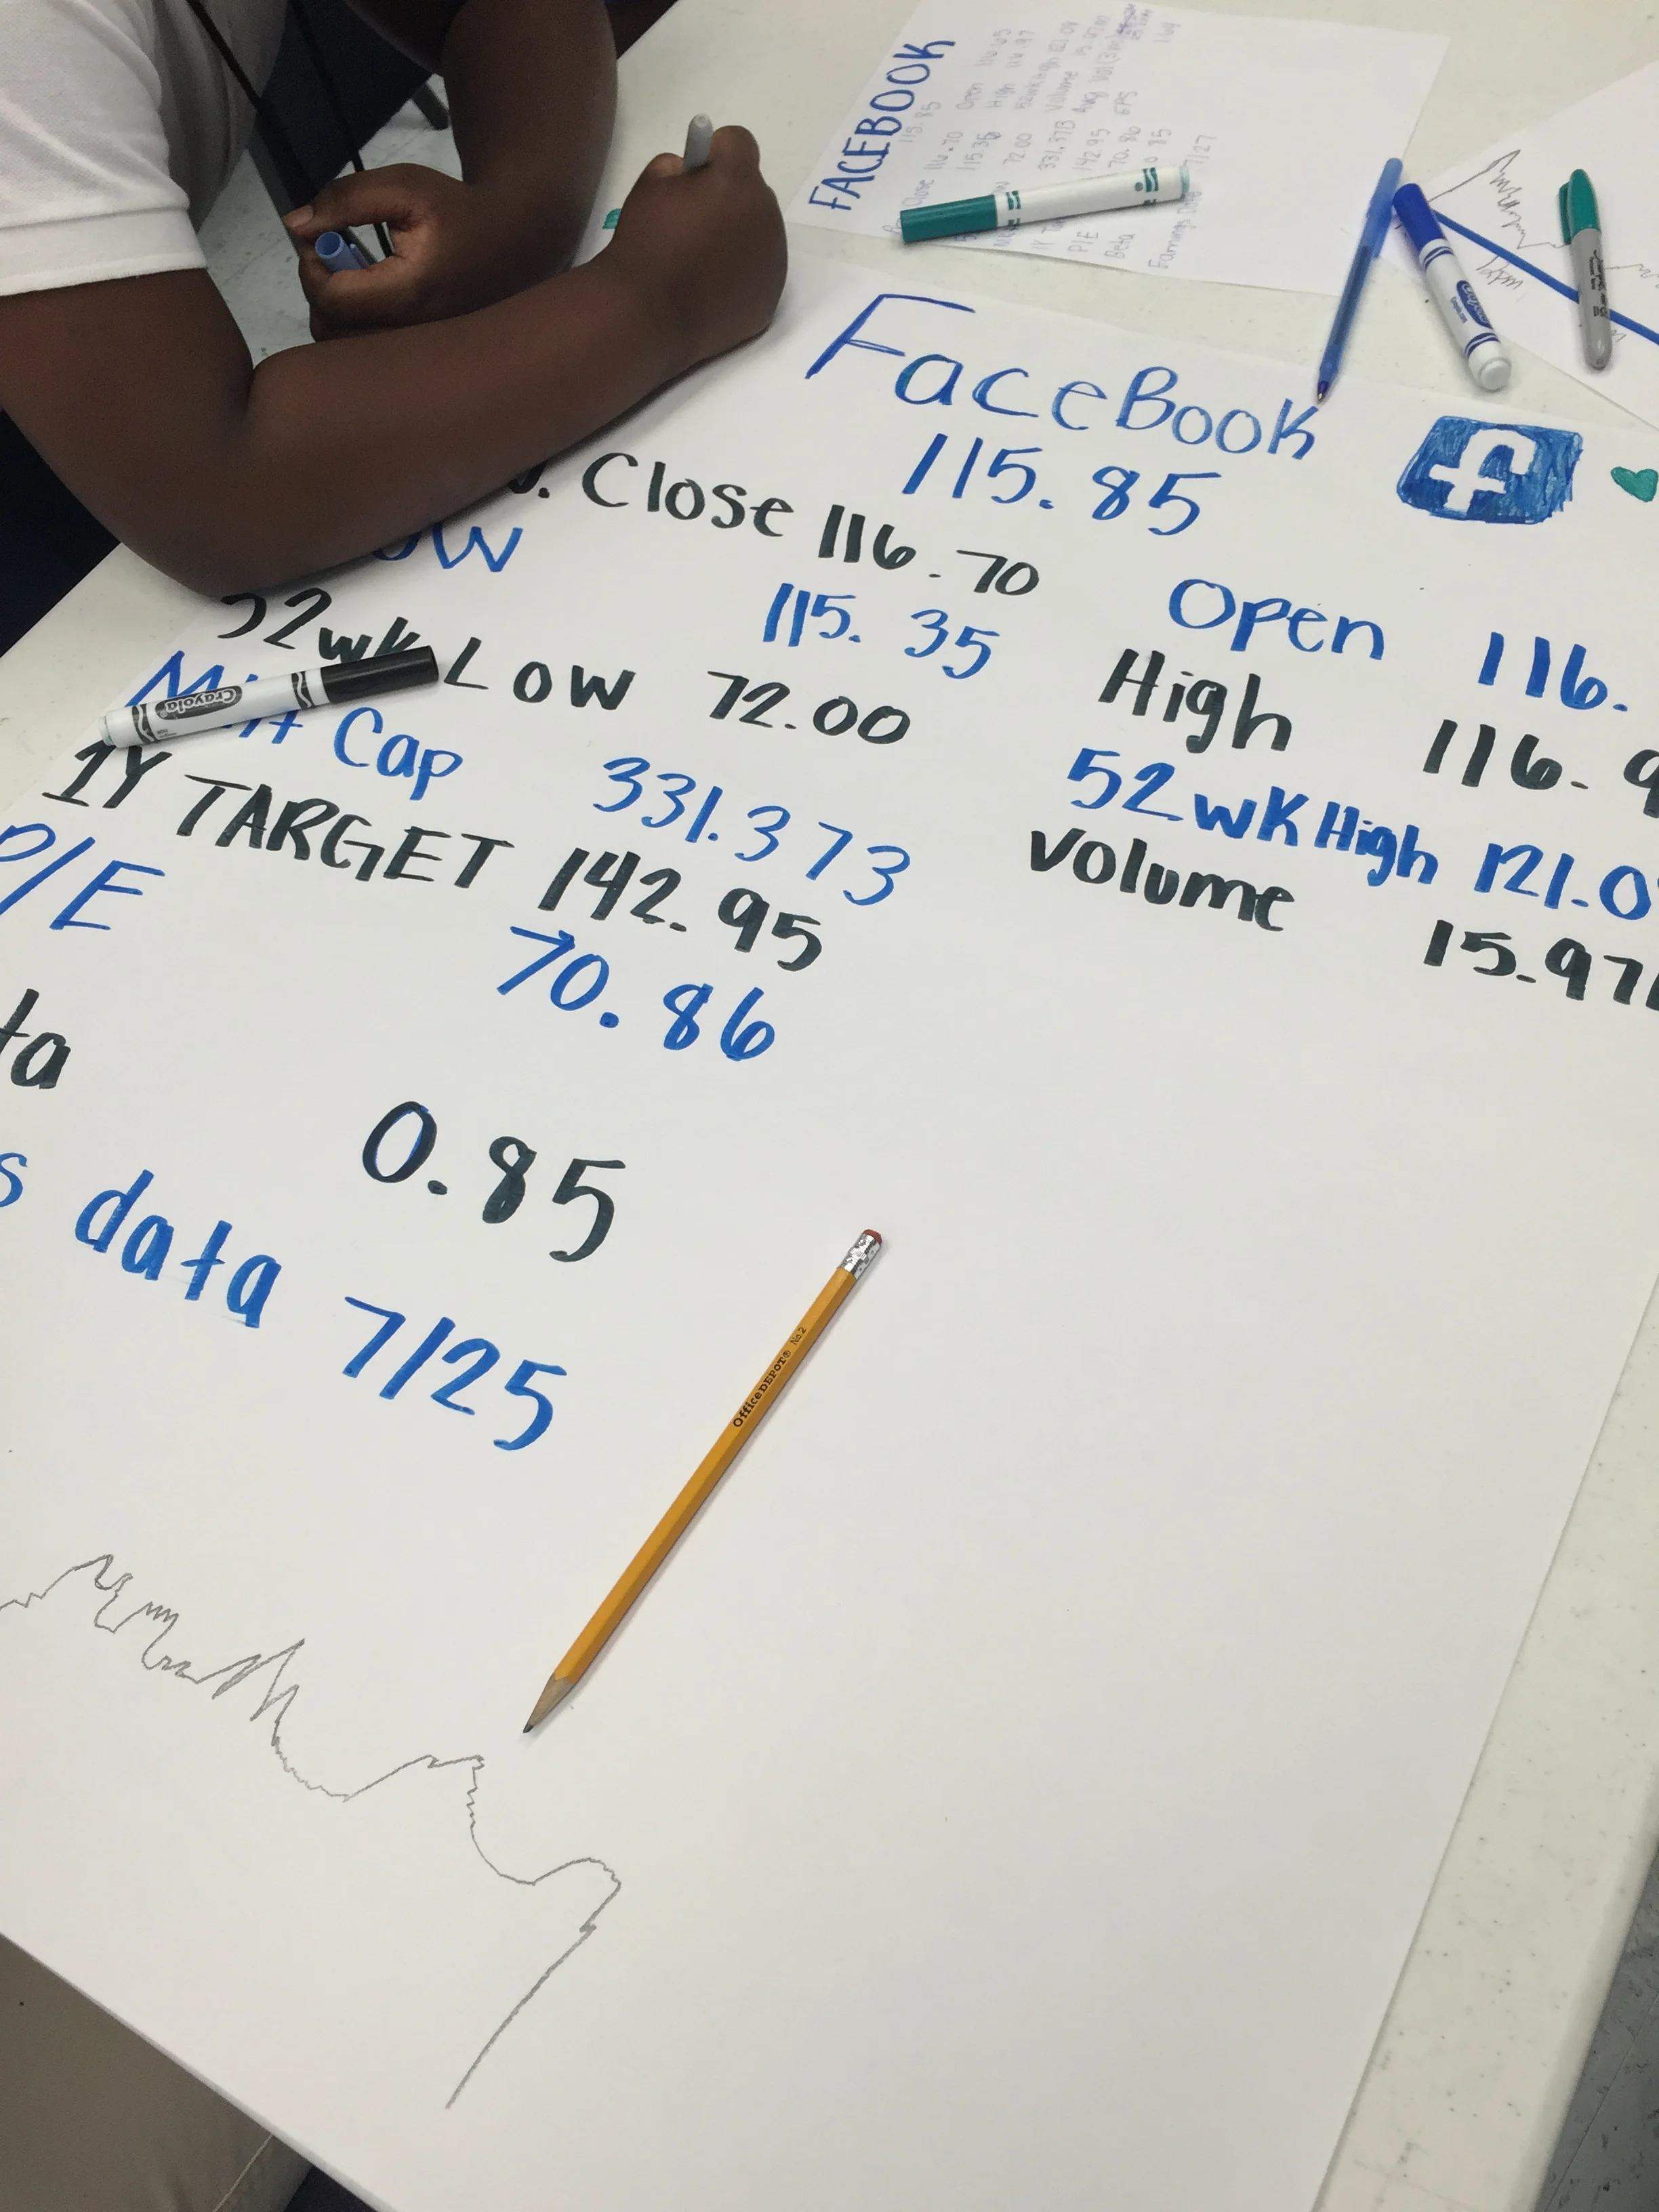 FACEBOOK
115.85
Close 116.70 Open 116.65
115.35 High 116.97
72.00 52wk High 121.08
331.37B Volume
1Y 142.95 Avg Vol (3m)
P/E 70.86 EPS
Beta 85
Earnings Date 7/27
FaceBook
115.85
f
Close 116.70 Open 116.
115.35 High 116.9
52wk Low 72.00 52wk High 121.0
Cap 331.373 Volume 15.97
1Y TARGET 142.95
P/E 70.86
ta 0.85
s data 7/25
Crayola
OfficeDEPOT® No.2